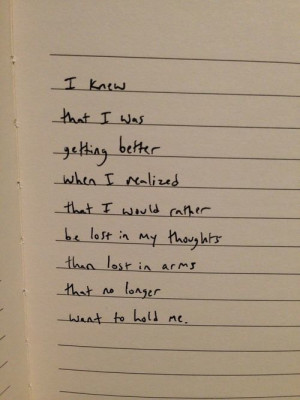 I knew
that I was
getting better
when I realized
that I would rather
be lost in my thoughts
than lost in arms
that no longer
want to hold me.